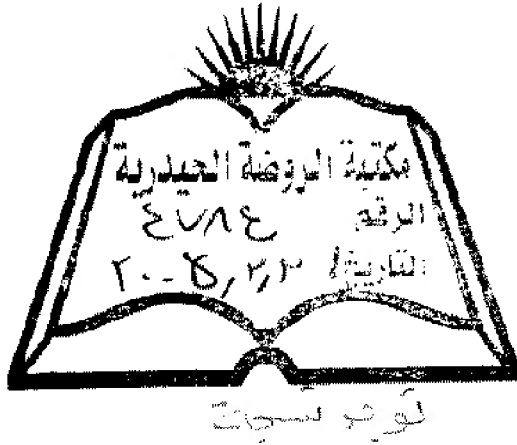 مكتبة الروضة الحيدرية
الرقم ٤٧٨٤
التاريخ
توجد نسخة